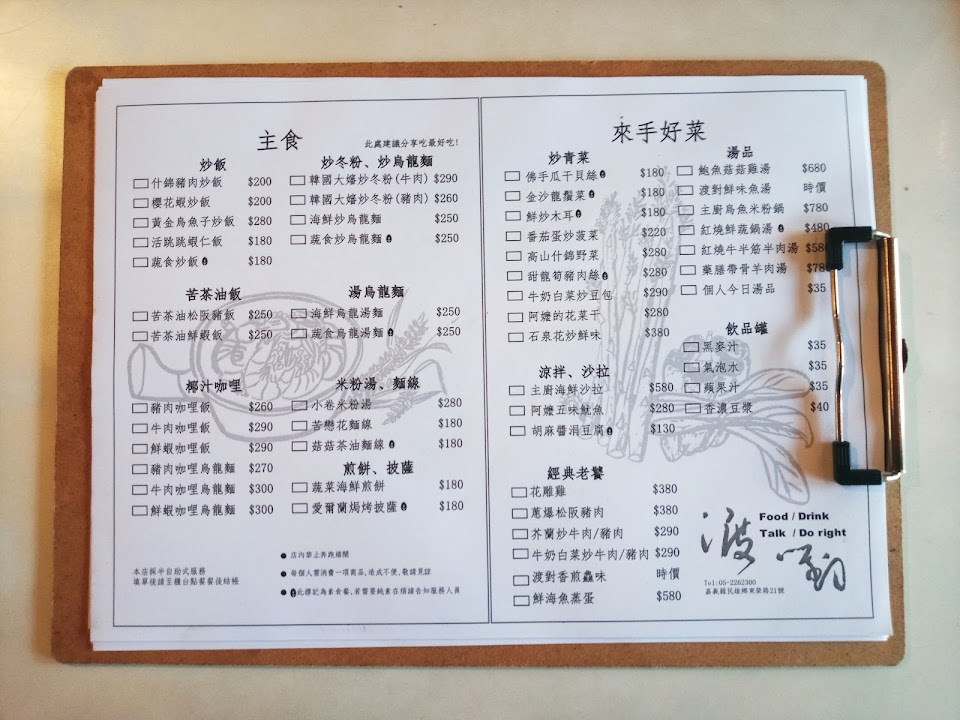 主食
此處建議分享吃最好吃!
炒飯
什錦豬肉炒飯 $200
櫻花蝦炒飯 $200
黃金烏魚子炒飯 $280
活跳跳蝦仁飯 $180
蔬食炒飯 $180
苦茶油飯
苦茶油松阪豬飯 $250
苦茶油鮮蝦飯 $250
椰汁咖哩
豬肉咖哩飯 $260
牛肉咖哩飯 $290
鮮蝦咖哩飯 $290
豬肉咖哩烏龍麵 $270
牛肉咖哩烏龍麵 $300
鮮蝦咖哩烏龍麵 $300
本店採半自助式服務
填單後請至櫃台點餐餐後結帳
炒冬粉、炒烏龍麵
韓國大嬸炒冬粉(牛肉) $290
韓國大嬸炒冬粉(豬肉) $260
海鮮炒烏龍麵 $250
蔬食炒烏龍麵 $250
湯烏龍麵
海鮮烏龍湯麵 $250
蔬食烏龍湯麵 $250
米粉湯、麵線
小卷米粉湯 $280
苦戀花麵線 $180
菇菇茶油麵線 $180
煎餅、披薩
蔬菜海鮮煎餅 $180
愛爾蘭焗烤披薩 $180
● 店內禁止奔跑嬉鬧
● 每個人需消費一項商品,造成不便,敬請見諒
● 此標記為素食餐,若需要純素在煩請告知服務人員
來手好菜
炒青菜
佛手瓜干貝絲 $180
金沙龍鬚菜 $180
鮮炒木耳 $180
番茄蛋炒菠菜 $220
高山什錦野菜 $280
甜龍筍豬肉絲 $280
牛奶白菜炒豆包 $290
阿嬤的花菜干 $280
石泉花炒鮮味 $380
涼拌、沙拉
主廚海鮮沙拉 $580
阿嬤五味魷魚 $280
胡麻醬涓豆腐 $130
經典老饕
花雕雞 $380
蔥爆松阪豬肉 $380
芥蘭炒牛肉/豬肉 $290
牛奶白菜炒牛肉/豬肉 $290
渡對香煎鱻味 時價
鮮海魚蒸蛋 $580
湯品
鮑魚菇菇雞湯 $680
渡對鮮味魚湯 時價
主廚烏魚米粉鍋 $780
紅燒鮮蔬鍋湯 $480
紅燒牛半筋半肉湯 $580
藥膳帶骨羊肉湯 $780
個人今日湯品 $35
飲品罐
黑麥汁 $35
氣泡水 $35
蘋果汁 $35
香濃豆漿 $40
渡對
Food / Drink
Talk / Do right
Tel:05-2262300
嘉義縣民雄鄉東榮路21號